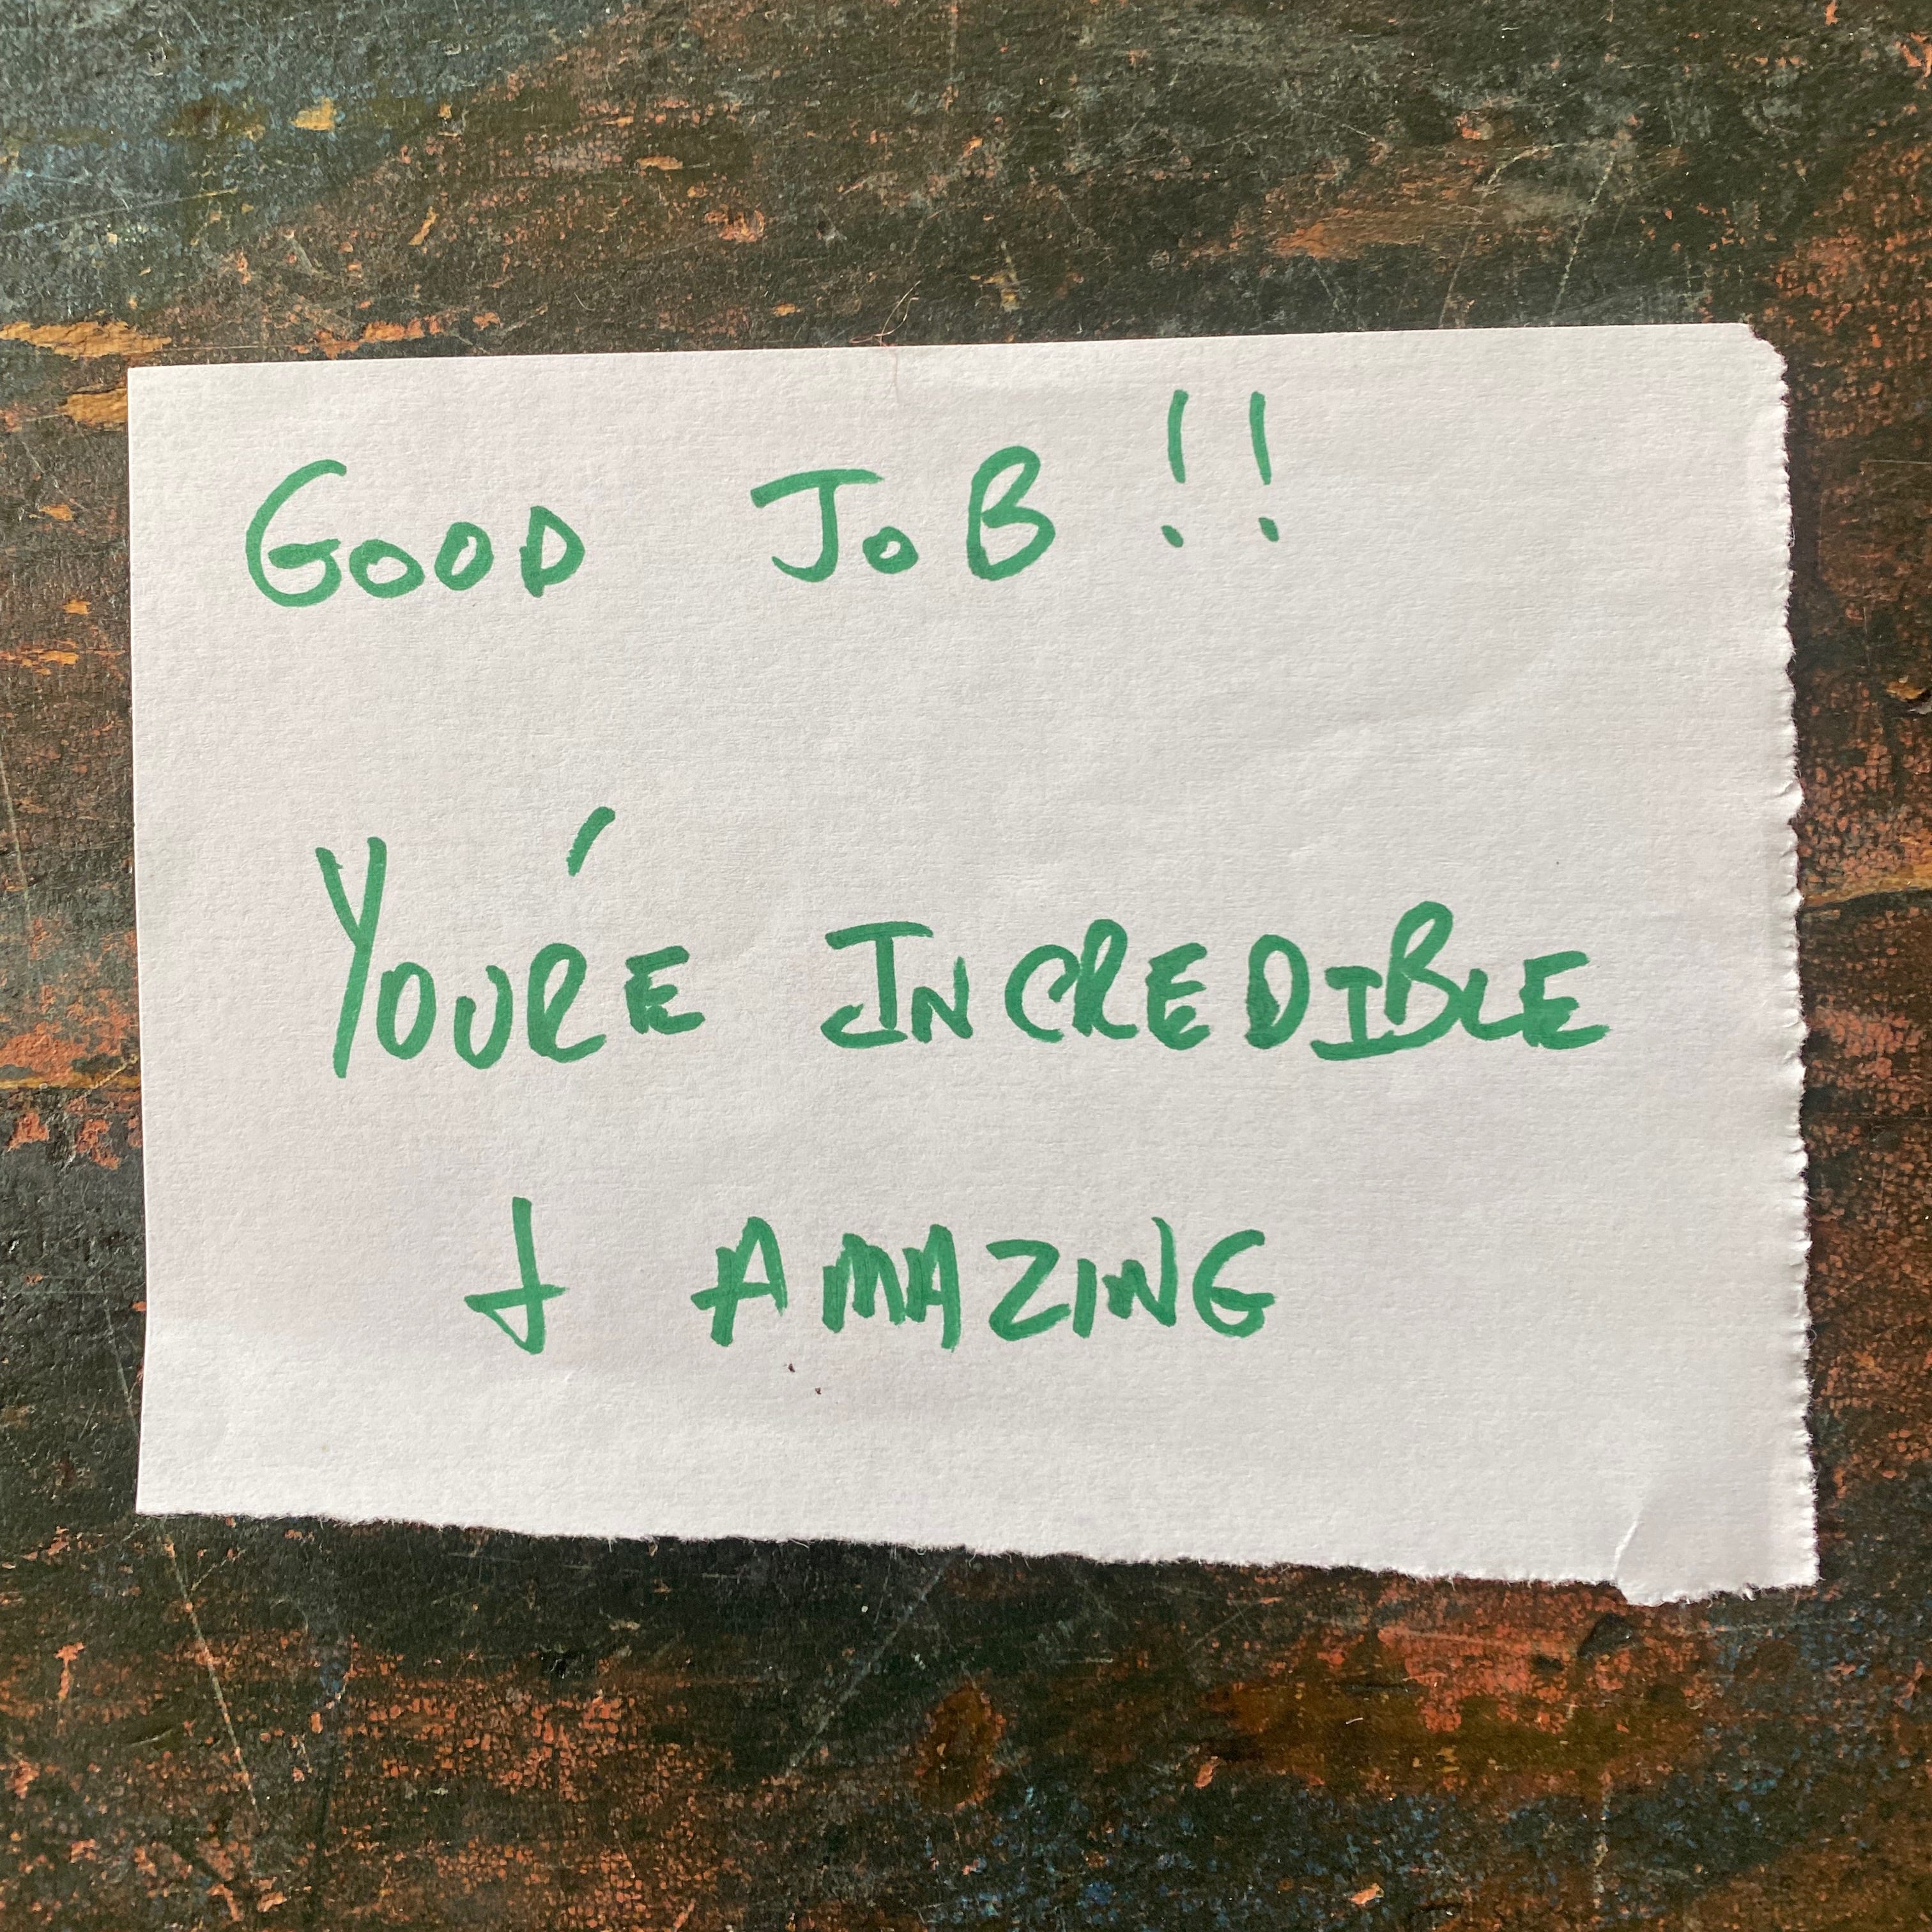 GOOD JOB !!
YOU'RE INCREDIBLE
+ AMAZING